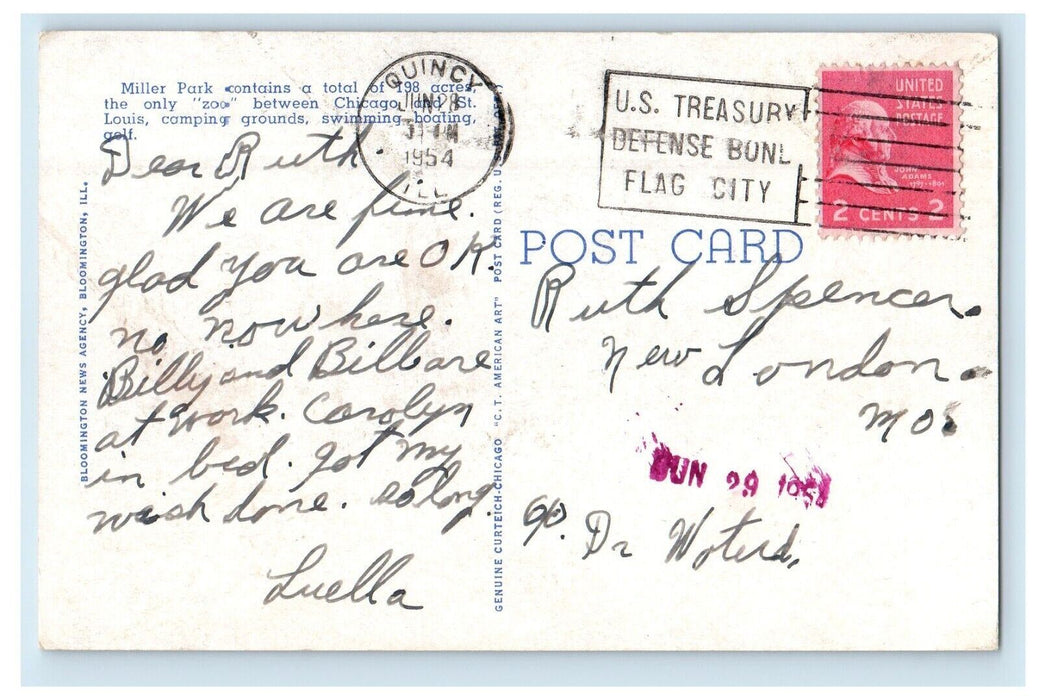 Miller Park contains a total of 198 acres,
the only "zoo" between Chicago and St.
Louis, camping grounds, swimming, boating,
golf.
QUINCY
JUN 28
PM
1954
ILL
U.S. TREASURY
DEFENSE BON
FLAG CITY
UNITED
STATES
POSTAGE
JOHN
ADAMS
1797-1801
2 CENTS 2
POST CARD
Dear Ruth.
We are fine.
glad you are OK.
no now here.
Billy and Bill are
at work. Carolyn
in bed. got my
wash done. so long.
Luella
Ruth Spencer.
New London.
Mo.
JUN 29 195
c/o. Dr
BLOOMINGTON NEWS AGENCY, BLOOMINGTON, ILL.
GENUINE CURTEICH-CHICAGO "C.T. AMERICAN ART" POST CARD (REG. U.S.